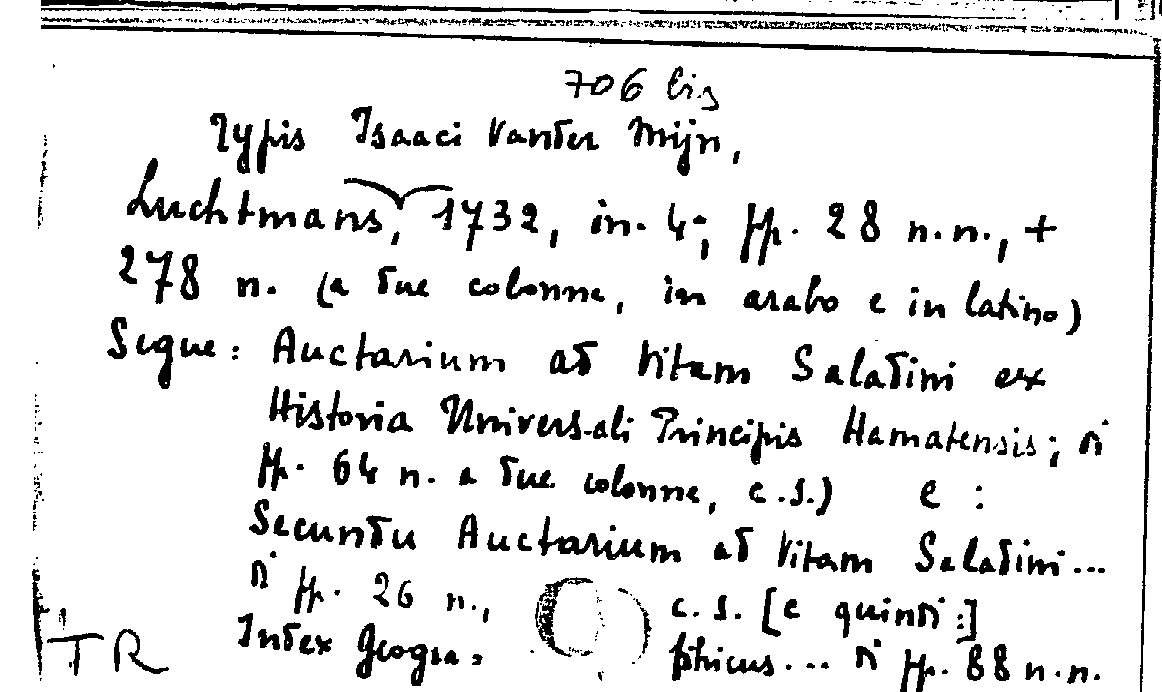 706 bis
Typis Isaaci Vander Mijn,
Luchtmans, 1732, in-4°, pp. 28 n.n., +
278 n. (a due colonne, in arabo e in latino)
Segue: Auctarium ad Vitam Saladini ex
Historia Universali Principis Hamatensis; di
pp. 64 n. a due colonne, c.s.) e :
Secundu Auctarium ad Vitam Saladini...
di pp. 26 n., c.s. [e quindi:]
Index Geogra= phicus... di pp. 88 n.n.
TR